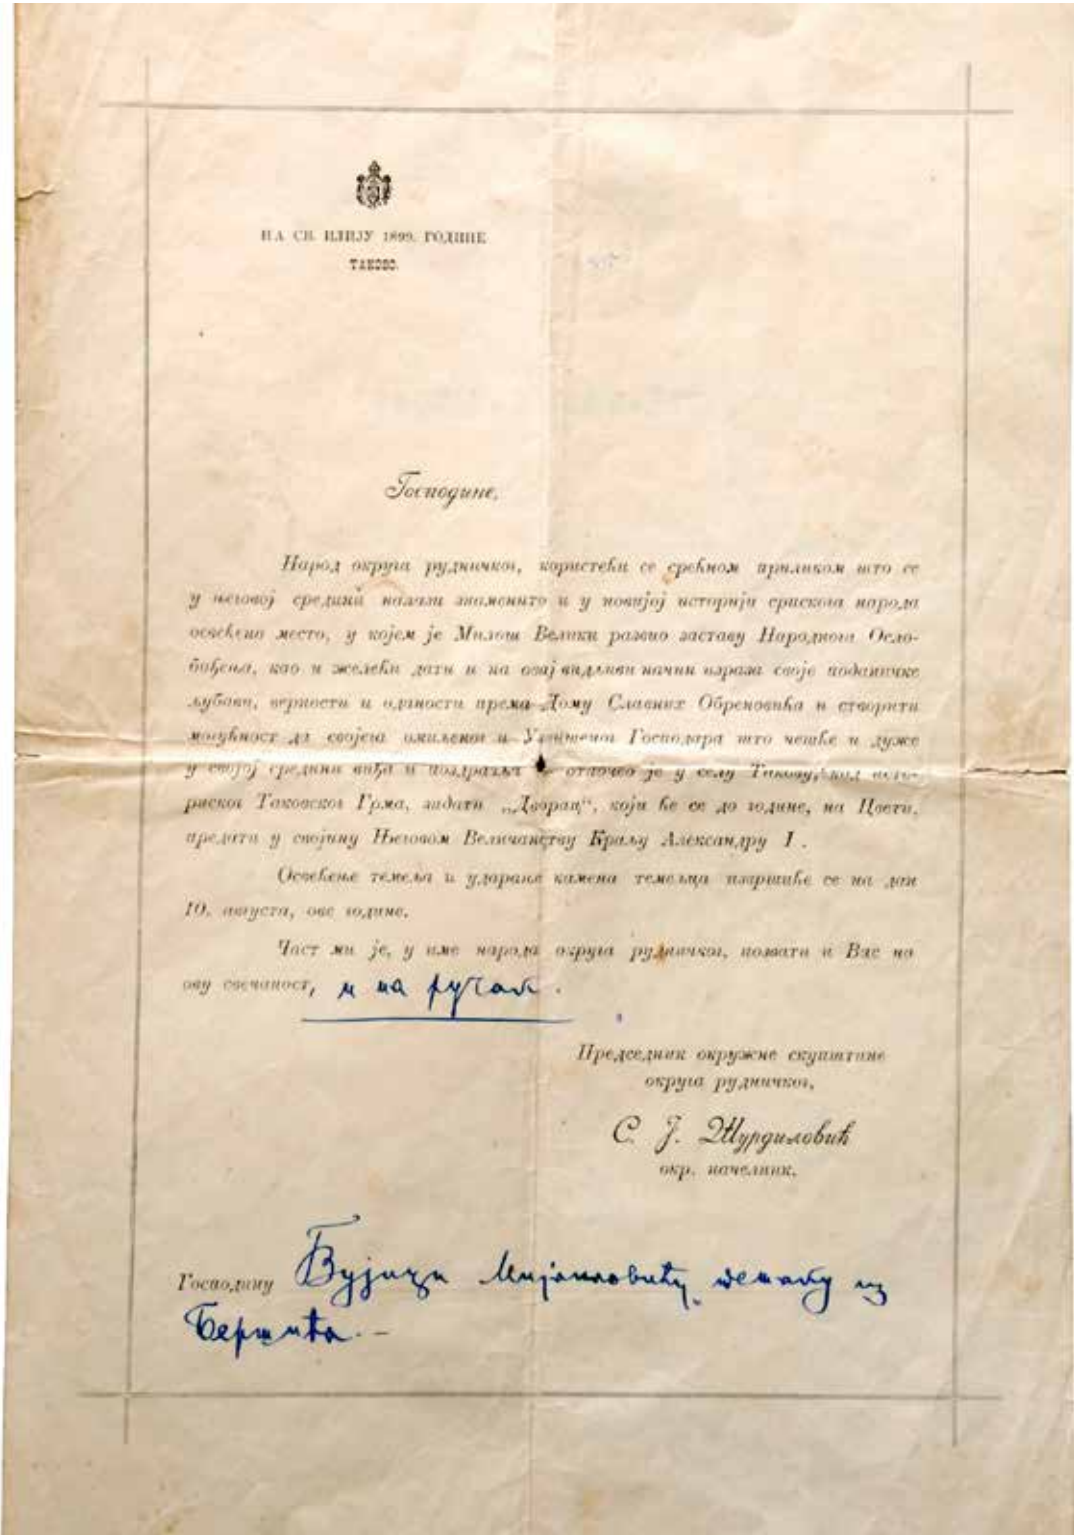 НА СВ. ИЛИЈУ 1899. ГОДИНЕ
ТАКОВО.
Господине,
Народ округа рудничког, користећи се срећном приликом што се
у његовој средини налази знаменито и у новијој историји српскога народа
освећено место, у којем је Милош Велики развио заставу Народнога Осло-
бођења, као и желећи дати и на овај видљиви начин израза своје поданичке
љубави, верности и оданости према Дому Славних Обреновића и створити
могућност да својега омиљеног и Узвишеног Господара што чешће и дуже
у својој средини виђа и поздравља отпочео је у селу Такову, код исто-
риског Таковског Грма, зидати „Дворац“, који ће се до године, на Цвети,
предати у својину Његовом Величанству Краљу Александру I.
Освећење темеља и ударање камена темељца извршиће се на дан
10. августа, ове године.
Част ми је, у име народа округа рудничког, позвати и Вас на
ову свечаност, и на ручак.
Председник окружне скупштине
округа рудничког,
С. Ј. Ђурдиловић
окр. начелник.
Господину Вујици Мијаиловићу, из
Бершића. –